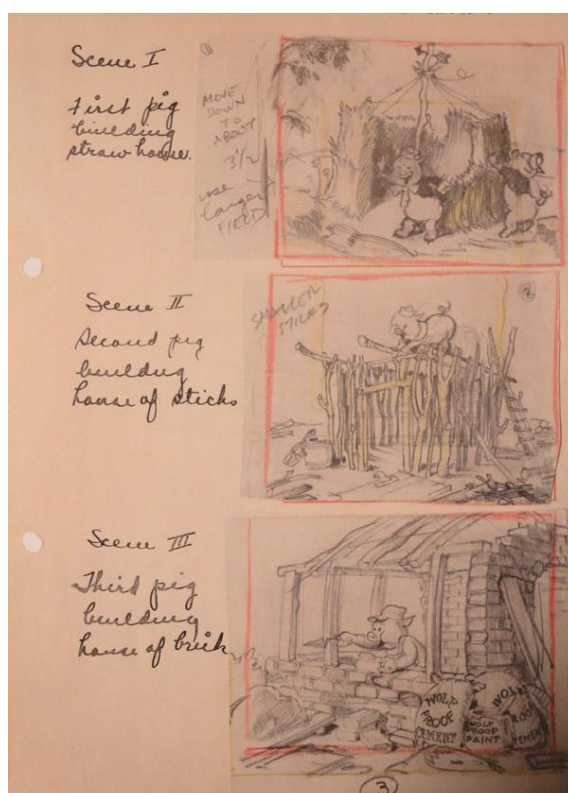 Scene I
First pig
building
straw house.
1
MOVE
DOWN
TO
ABOUT
3 1/2
use
larger
FIELD
Scene II
Second pig
building
house of sticks
2
SMALLER
STICKS
Scene III
Third pig
building
house of brick
WOLF
PROOF
CEMENT
WOLF
PROOF
PAINT
WOLF
PROOF
CEMENT
3